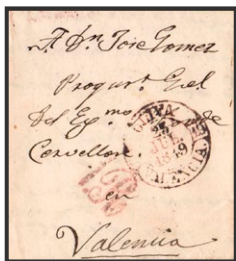 A Dn. Jose Gomez
Procurr. Gel.
Del Exmo. de
Cervellon.
OLIVA
25
JUL
1849
VALENCIA
en
Valencia